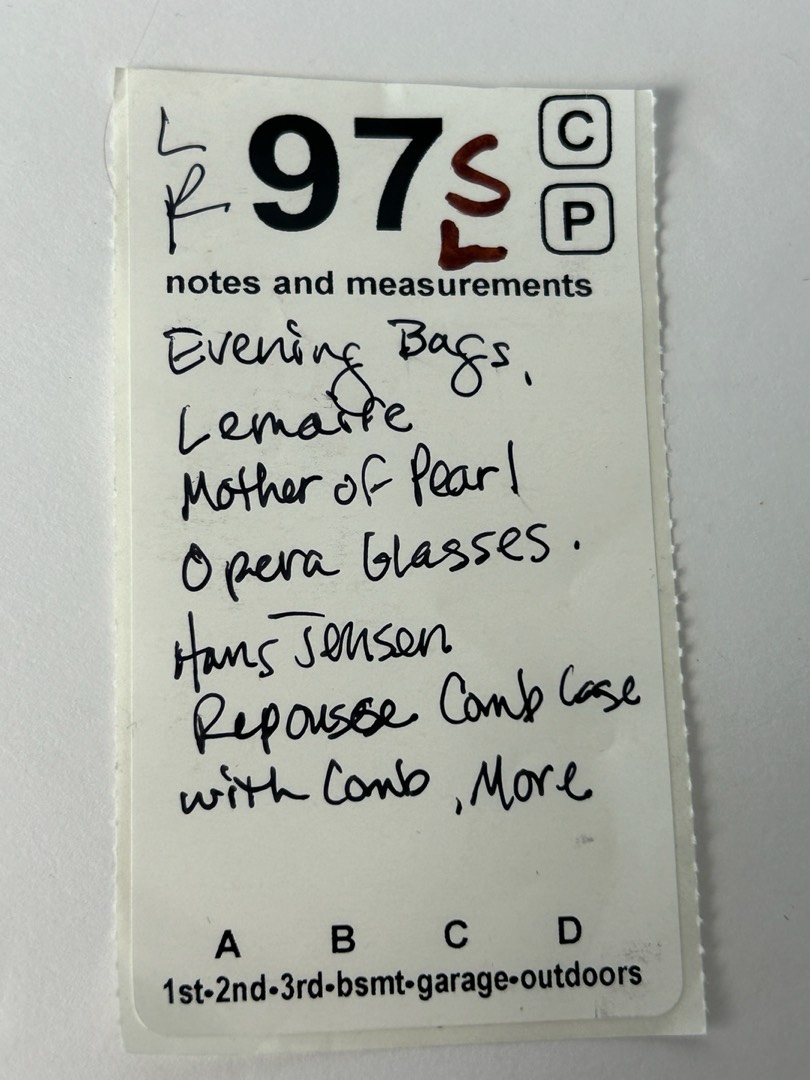 L
R
97 S
L
C
P
notes and measurements
Evening Bags,
Lemaire
Mother of Pearl
Opera Glasses.
Hans Jensen
Repousse Comb Case
with Comb, More
A B C D
1st•2nd•3rd•bsmt•garage•outdoors